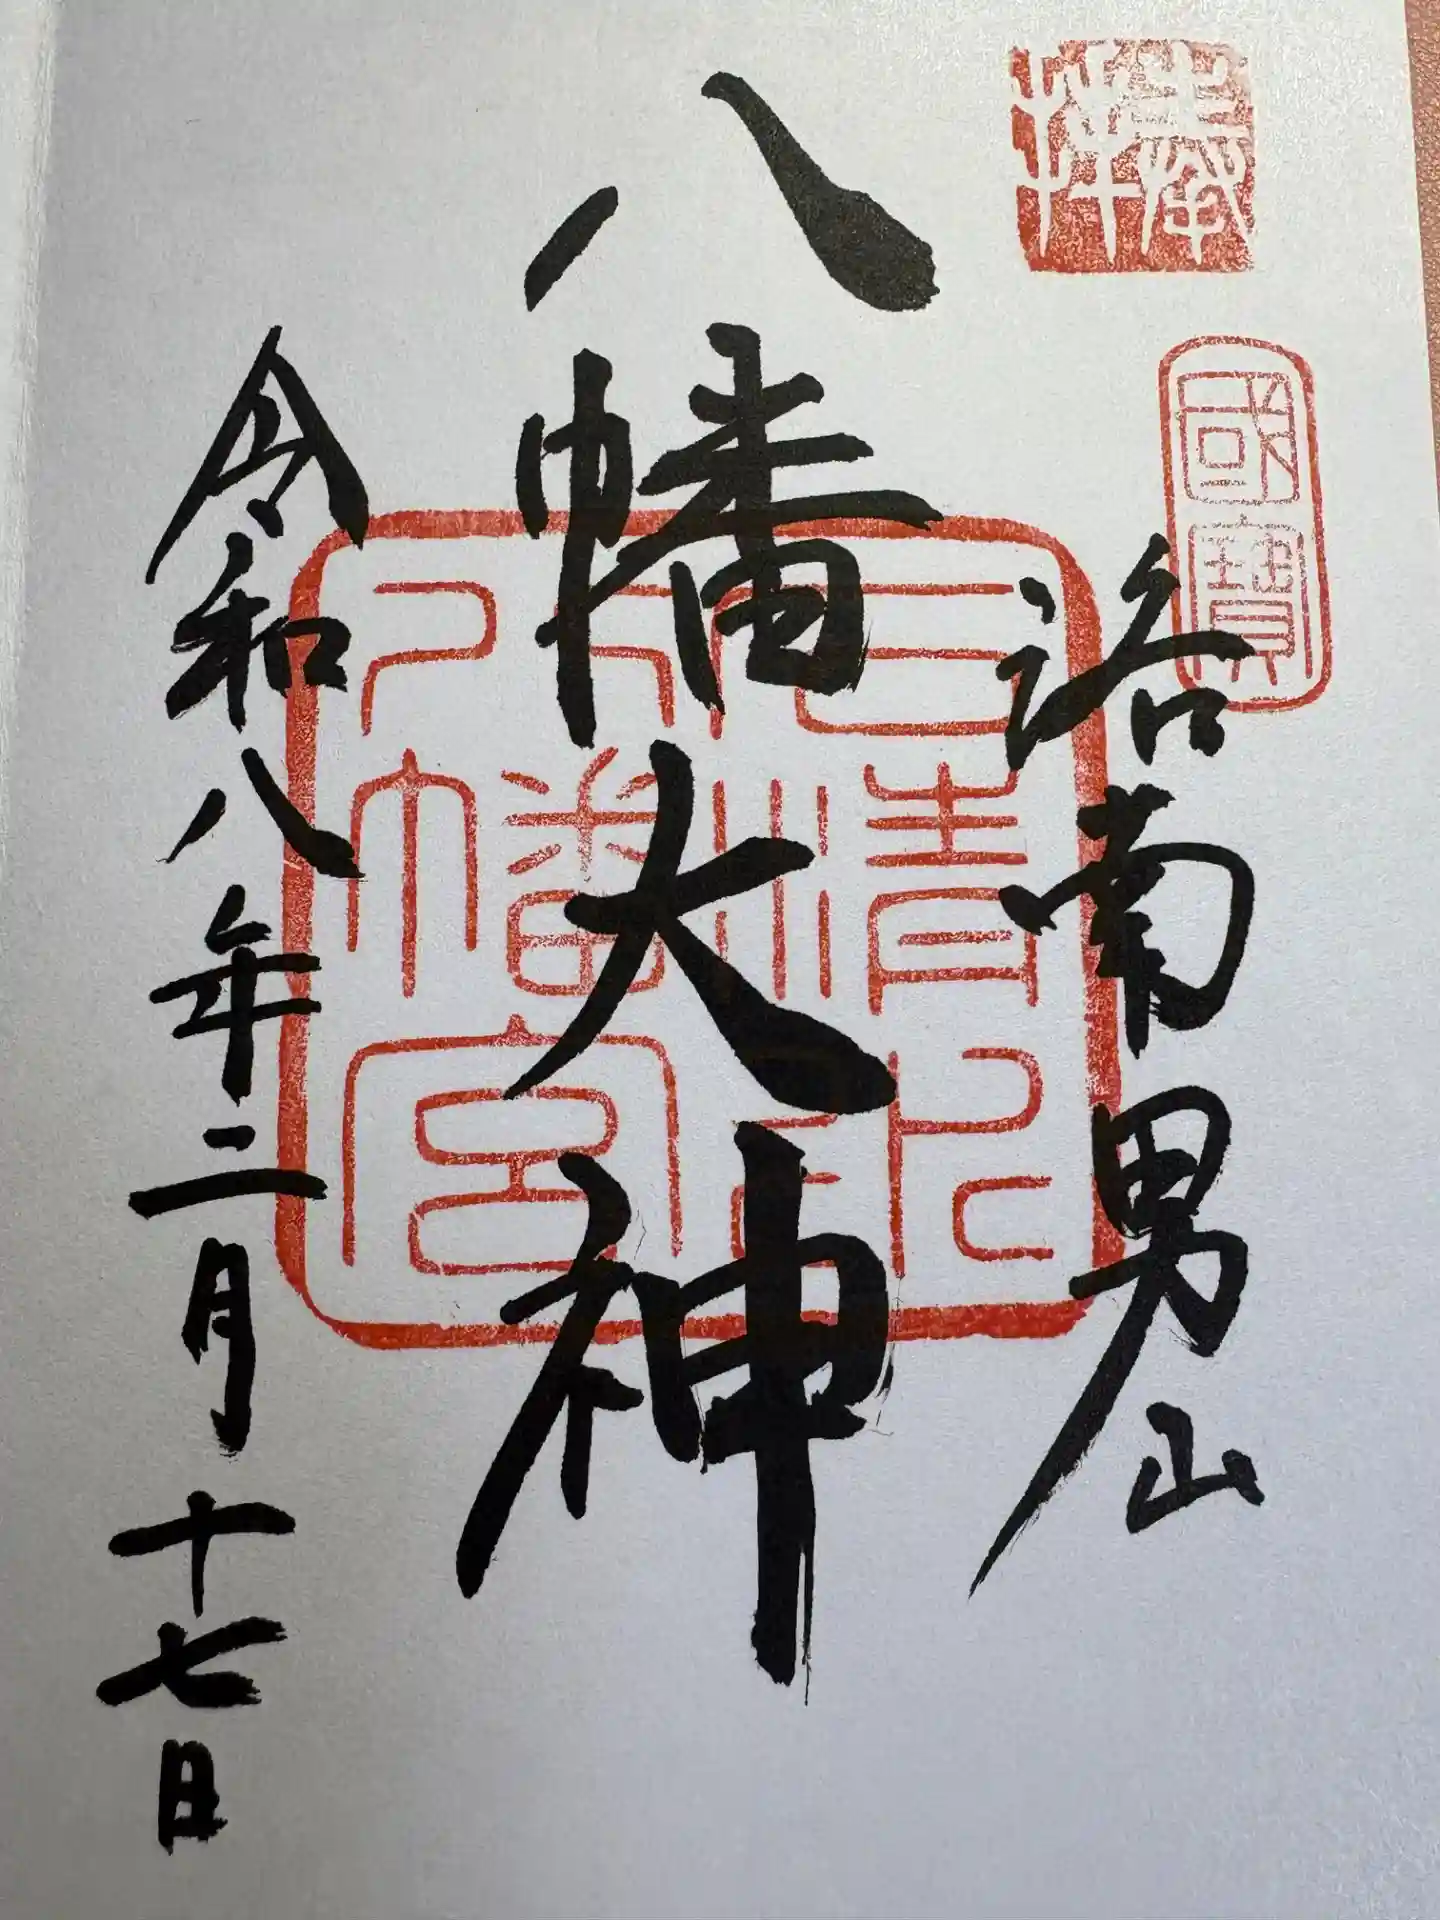 奉拝
國寶
洛南男山
八幡大神
石清水八幡宮
令和八年二月十七日